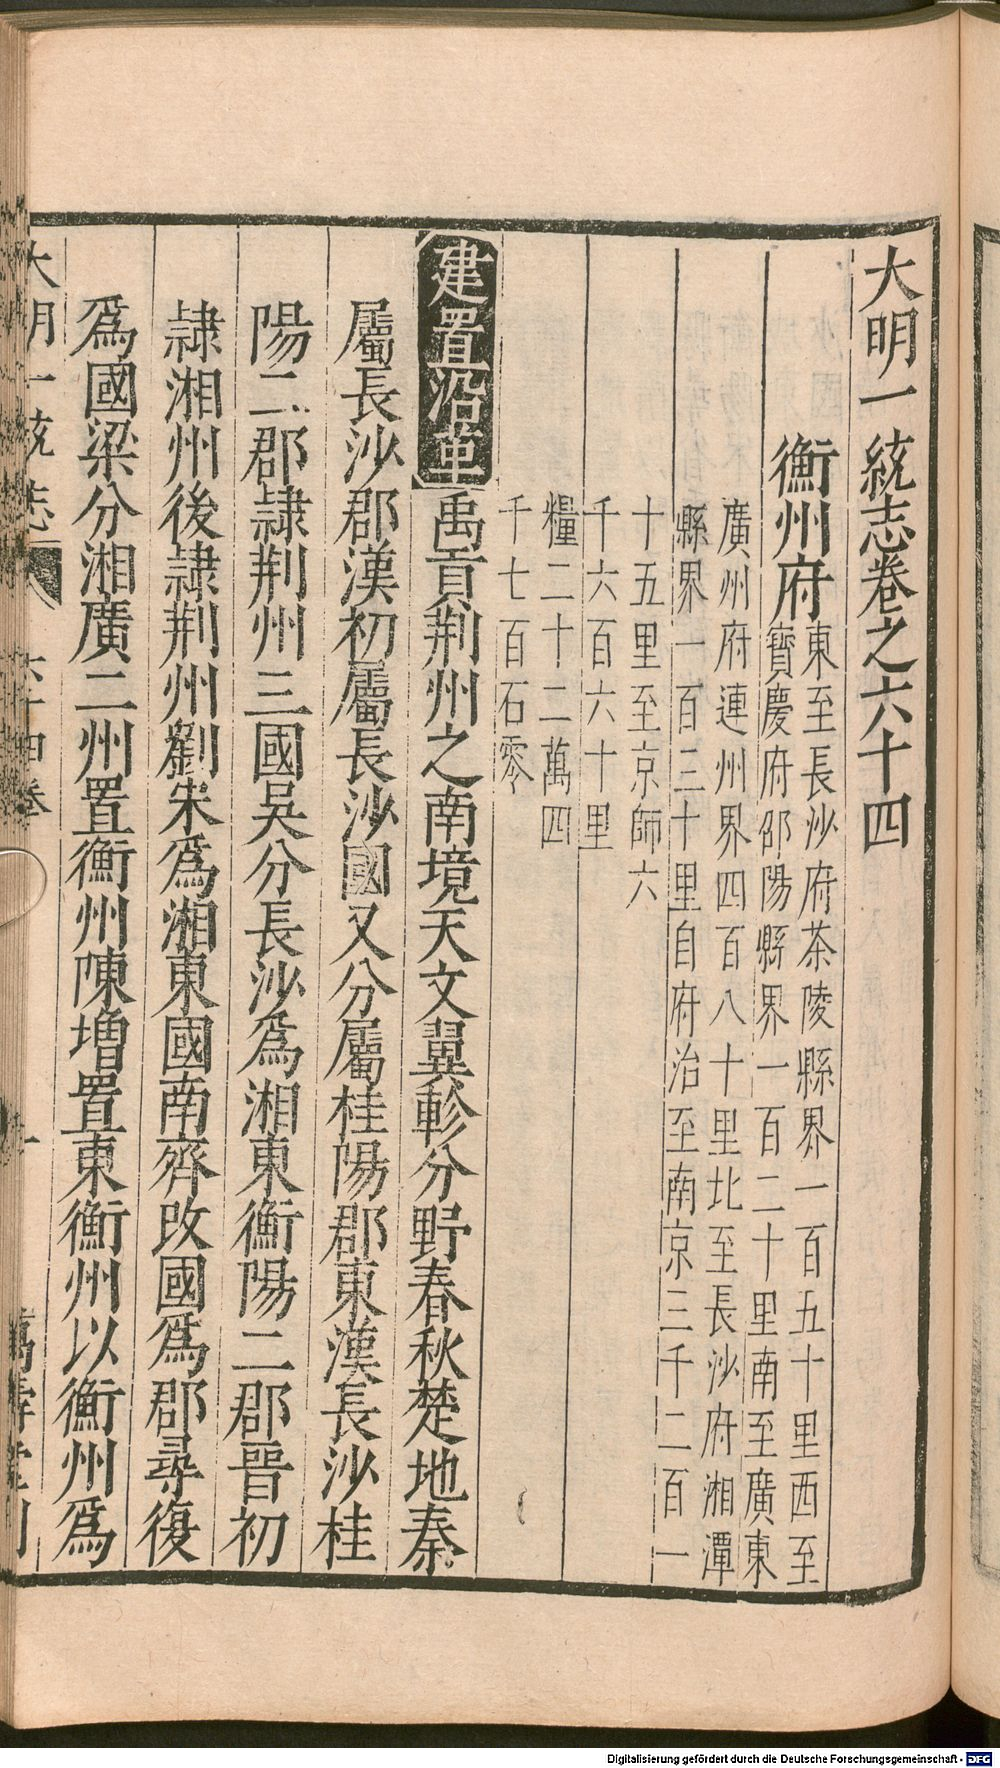 大明一統志卷之六十四
衡州府
東至長沙府茶陵縣界一百五十里西至
寶慶府邵陽縣界一百二十里南至廣東
廣州府連州界四百八十里北至長沙府湘潭
縣界一百三十里自府治至南京三千二百一
十五里至京師六
千六百六十里
糧二十二萬四
千七百石零
建置沿革禹貢荆州之南境天文翼軫分野春秋楚地秦
屬長沙郡漢初屬長沙國又分屬桂陽郡東漢長沙桂
陽二郡隷荆州三國吳分長沙爲湘東衡陽二郡晉初
隷湘州後隷荆州劉宋爲湘東國南齊改國爲郡尋復
爲國梁分湘廣二州置衡州陳增置東衡州以衡州爲
大明一統志 六十四卷 一 萬壽堂刊
Digitalisierung gefördert durch die Deutsche Forschungsgemeinschaft - DFG